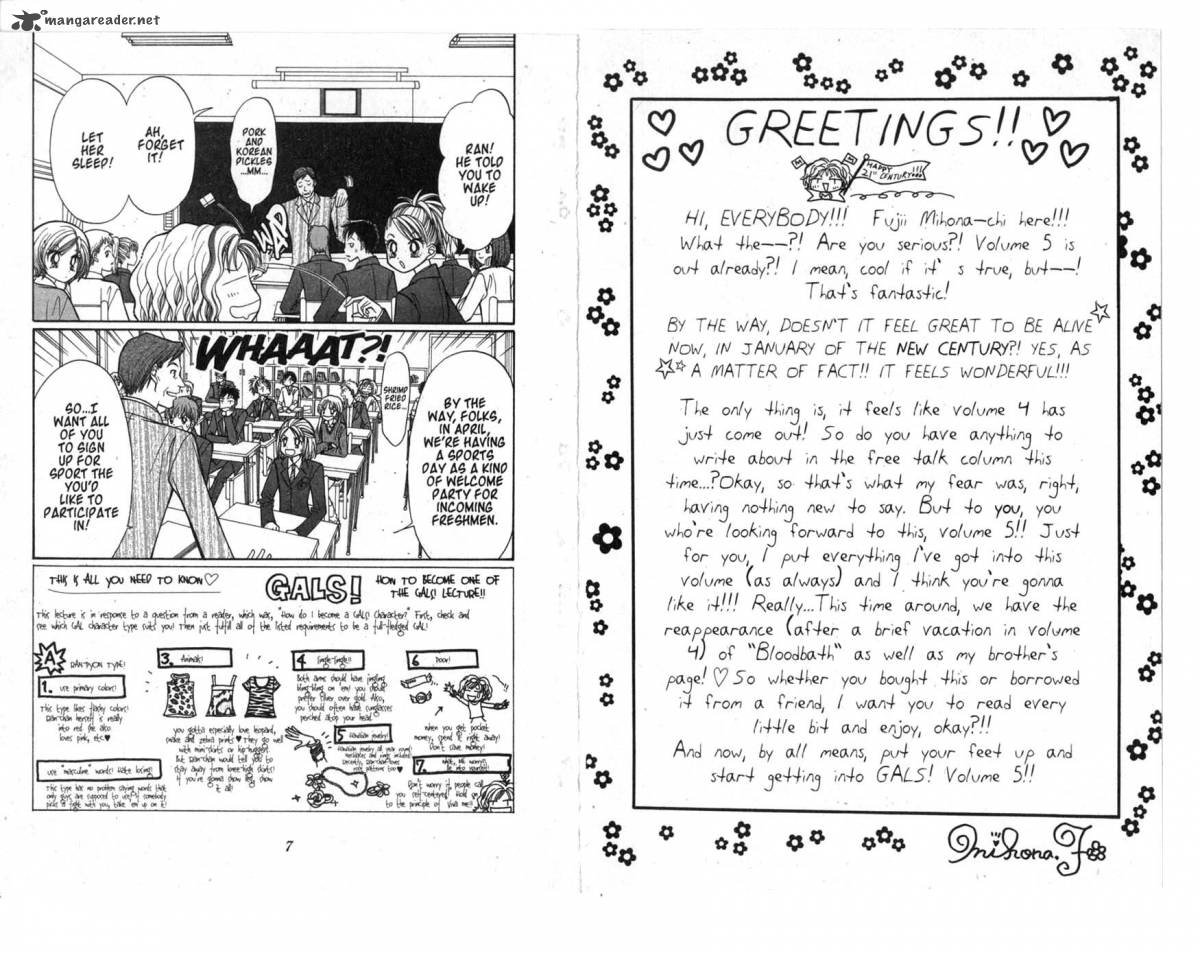 mangareader.net
RAN!
HE TOLD
YOU TO
WAKE
UP!
PORK
AND
KOREAN
PICKLES
...MM...
AH,
FORGET
IT!
LET
HER
SLEEP!
WAP
WHAAAT?!
BY THE
WAY, FOLKS,
IN APRIL,
WE'RE HAVING
A SPORTS
DAY AS A KIND
OF WELCOME
PARTY FOR
INCOMING
FRESHMEN.
SHRIMP
FRIED
RICE...
SO...I
WANT ALL
OF YOU
TO SIGN
UP FOR
SPORT THE
YOU'D
LIKE TO
PARTICIPATE
IN!
THIS IS ALL YOU NEED TO KNOW♡
GALS!
HOW TO BECOME ONE OF
THE GALS! LECTURE!!
This lecture is in response to a question from a reader, which was, "How do I become a GALS! Character?" First, check and
see which GAL character type suits you! Then just fulfill all of the listed requirements to be a full-fledged GAL!
A
RAN-PYON TYPE!
1. use primary colors!
This type likes flashy colors!
Ran-chan herself is really
into red. She also
loves pink, etc.♥
use "masculine" words! Hate losing!
This type has no problem saying words that
only guys are supposed to use. If somebody
picks a fight with you, take 'em up on it!
3. Animals!
you gotta especially love leopard,
snake and zebra prints♥ They go well
with mini-skirts or hip-huggers!
But Ran-chan would tell you to
stay away from knee-high skirts!
If you're gonna show leg, show
it all!
4 Jingle-Jingle!!
Both arms should have jingling
bling-bling on 'em! you should
prefer silver over gold. Also,
you should often have sunglasses
perched atop your head.
5 Hawaiian jewelry!
6 Poor!
when you get pocket
money, spend it right away!
Don't save money!
7.
Don't worry if people call
you self-centered. Hold on
to the principle of "Viva me!!"
7
GREETINGS!!
HAPPY
21st CENTURY!!!
HI, EVERYBODY!!! Fujii Mihona-chi here!!!
What the--?! Are you serious?! Volume 5 is
out already?! I mean, cool if it' s true, but--!
That's fantastic!
BY THE WAY, DOESN'T IT FEEL GREAT TO BE ALIVE
NOW, IN JANUARY OF THE NEW CENTURY?! YES, AS
A MATTER OF FACT!! IT FEELS WONDERFUL!!!
The only thing is, it feels like volume 4 has
just come out! So do you have anything to
write about in the free talk column this
time...?Okay, so that's what my fear was, right,
having nothing new to say. But to you, you
who're looking forward to this, volume 5!! Just
for you, I put everything I've got into this
volume (as always) and I think you're gonna
like it!!! Really...This time around, we have the
reappearance (after a brief vacation in volume
4) of "Bloodbath" as well as my brother's
page! ♡ So whether you bought this or borrowed
it from a friend, I want you to read every
little bit and enjoy, okay?!!
And now, by all means, put your feet up and
start getting into GALS! Volume 5!!
Mihona.F